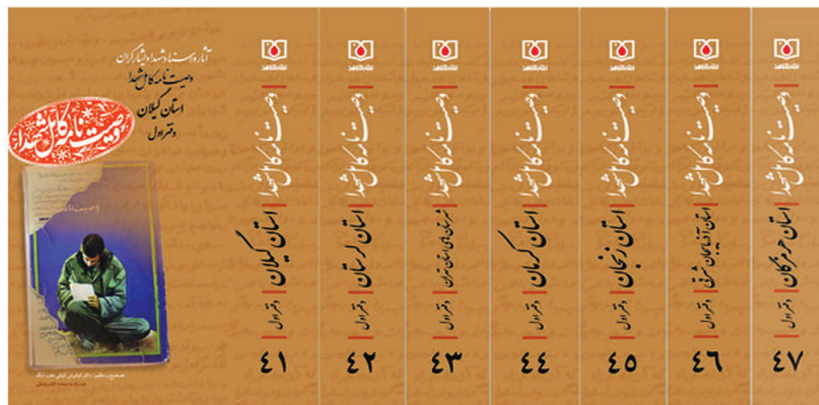 آثار و اسناد شهدا و ایثارگران
وصیت نامه کامل شهدا
استان گیلان
دفتر اول
وصیت نامه کامل شهدا
وصیت نامه
وصیت نامه کامل شهدا | استان گیلان | دفتر اول | ۴۱
وصیت نامه کامل شهدا | استان لرستان | دفتر اول | ۴۲
وصیت نامه کامل شهدا | شهرستان های استان تهران | دفتر اول | ۴۳
وصیت نامه کامل شهدا | استان کرمان | دفتر اول | ۴۴
وصیت نامه کامل شهدا | استان زنجان | دفتر اول | ۴۵
وصیت نامه کامل شهدا | استان آذربایجان شرقی | دفتر اول | ۴۶
وصیت نامه کامل شهدا | استان هرمزگان | دفتر اول | ۴۷